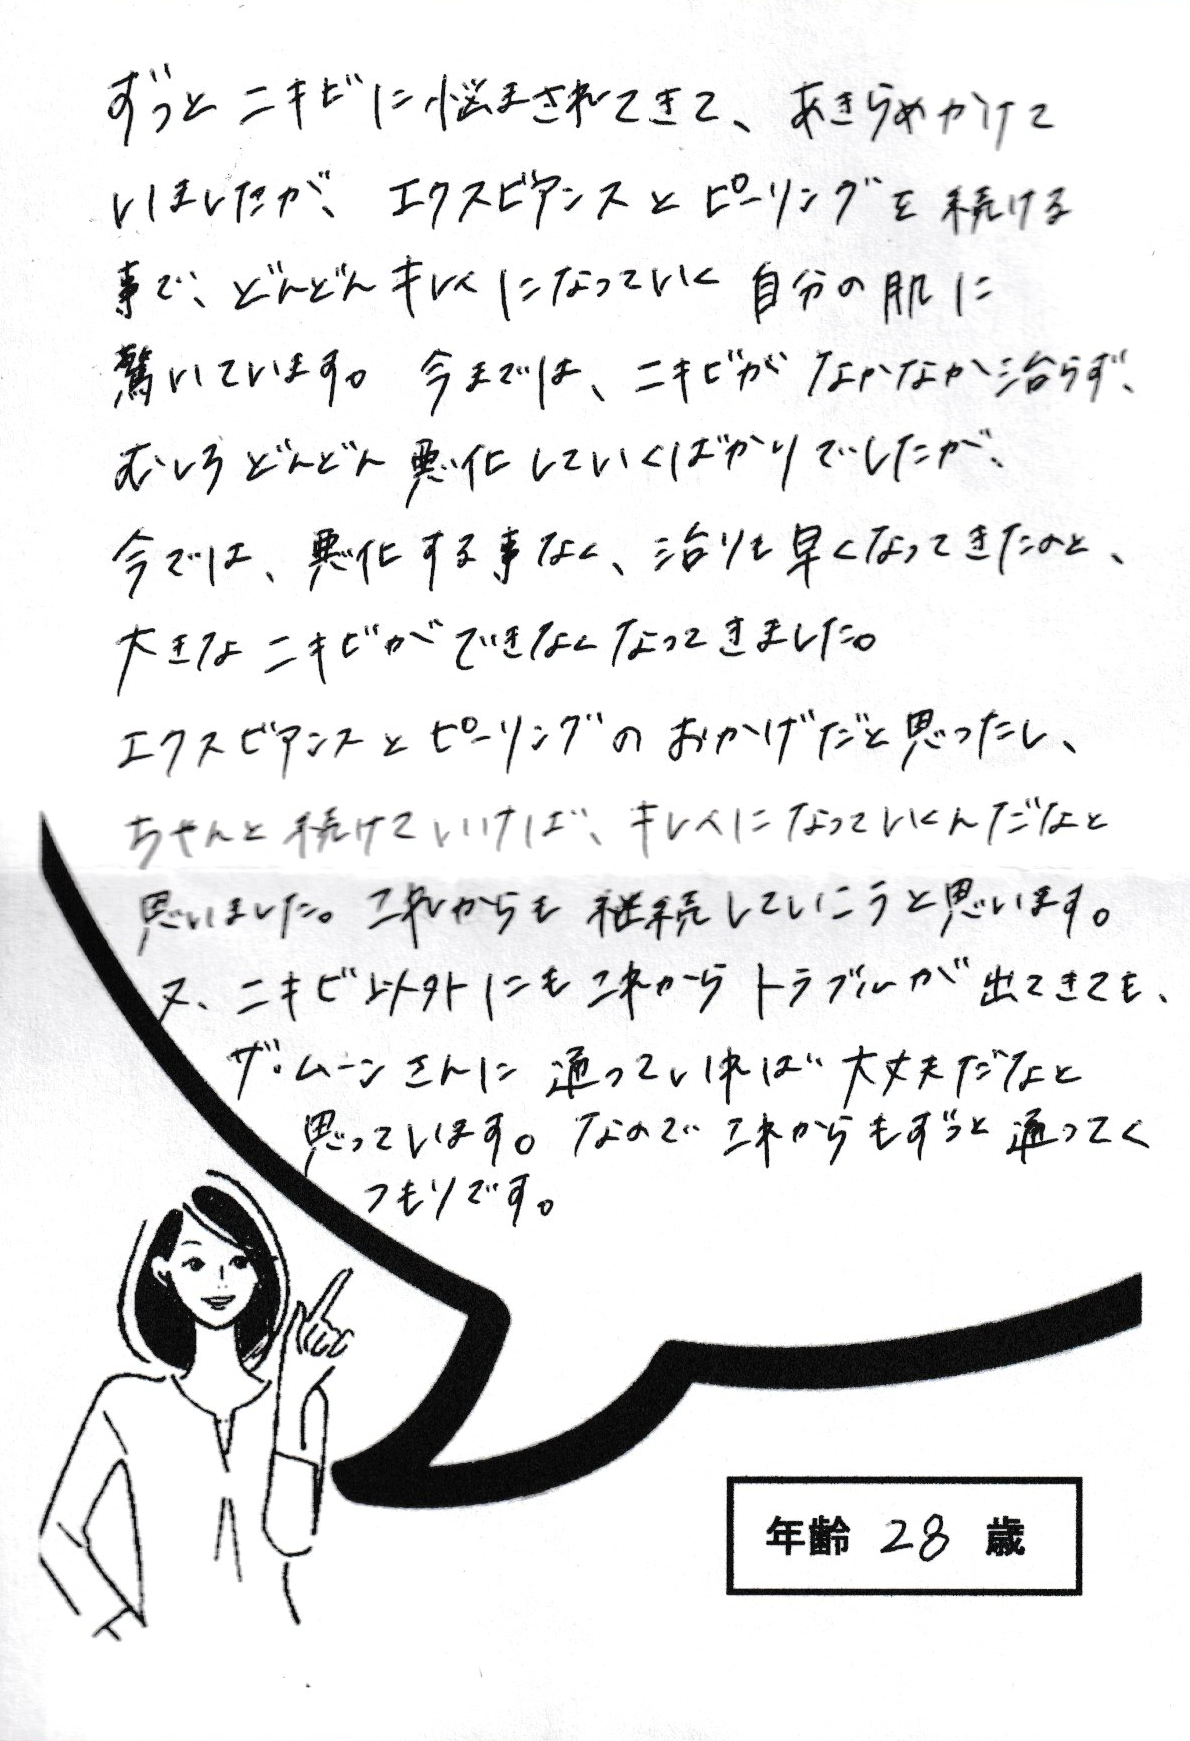 ずっとニキビに悩まされてきて、あきらめかけて
いましたが、エクスビアンスとピーリングを続ける
事で、どんどんキレイになっていく自分の肌に
驚いています。今までは、ニキビがなかなか治らず、
むしろどんどん悪化していくばかりでしたが、
今では、悪化する事なく、治りも早くなってきたのと、
大きなニキビができなくなってきました。
エクスビアンスとピーリングのおかげだと思ったし、
ちゃんと続けていけば、キレイになっていくんだなと
思いました。これからも継続していこうと思います。
又、ニキビ以外にもこれからトラブルが出てきても、
ザ・ムーンさんに通っていれば大丈夫だなと
思っています。なのでこれからもずっと通ってく
つもりです。
年齢 28 歳